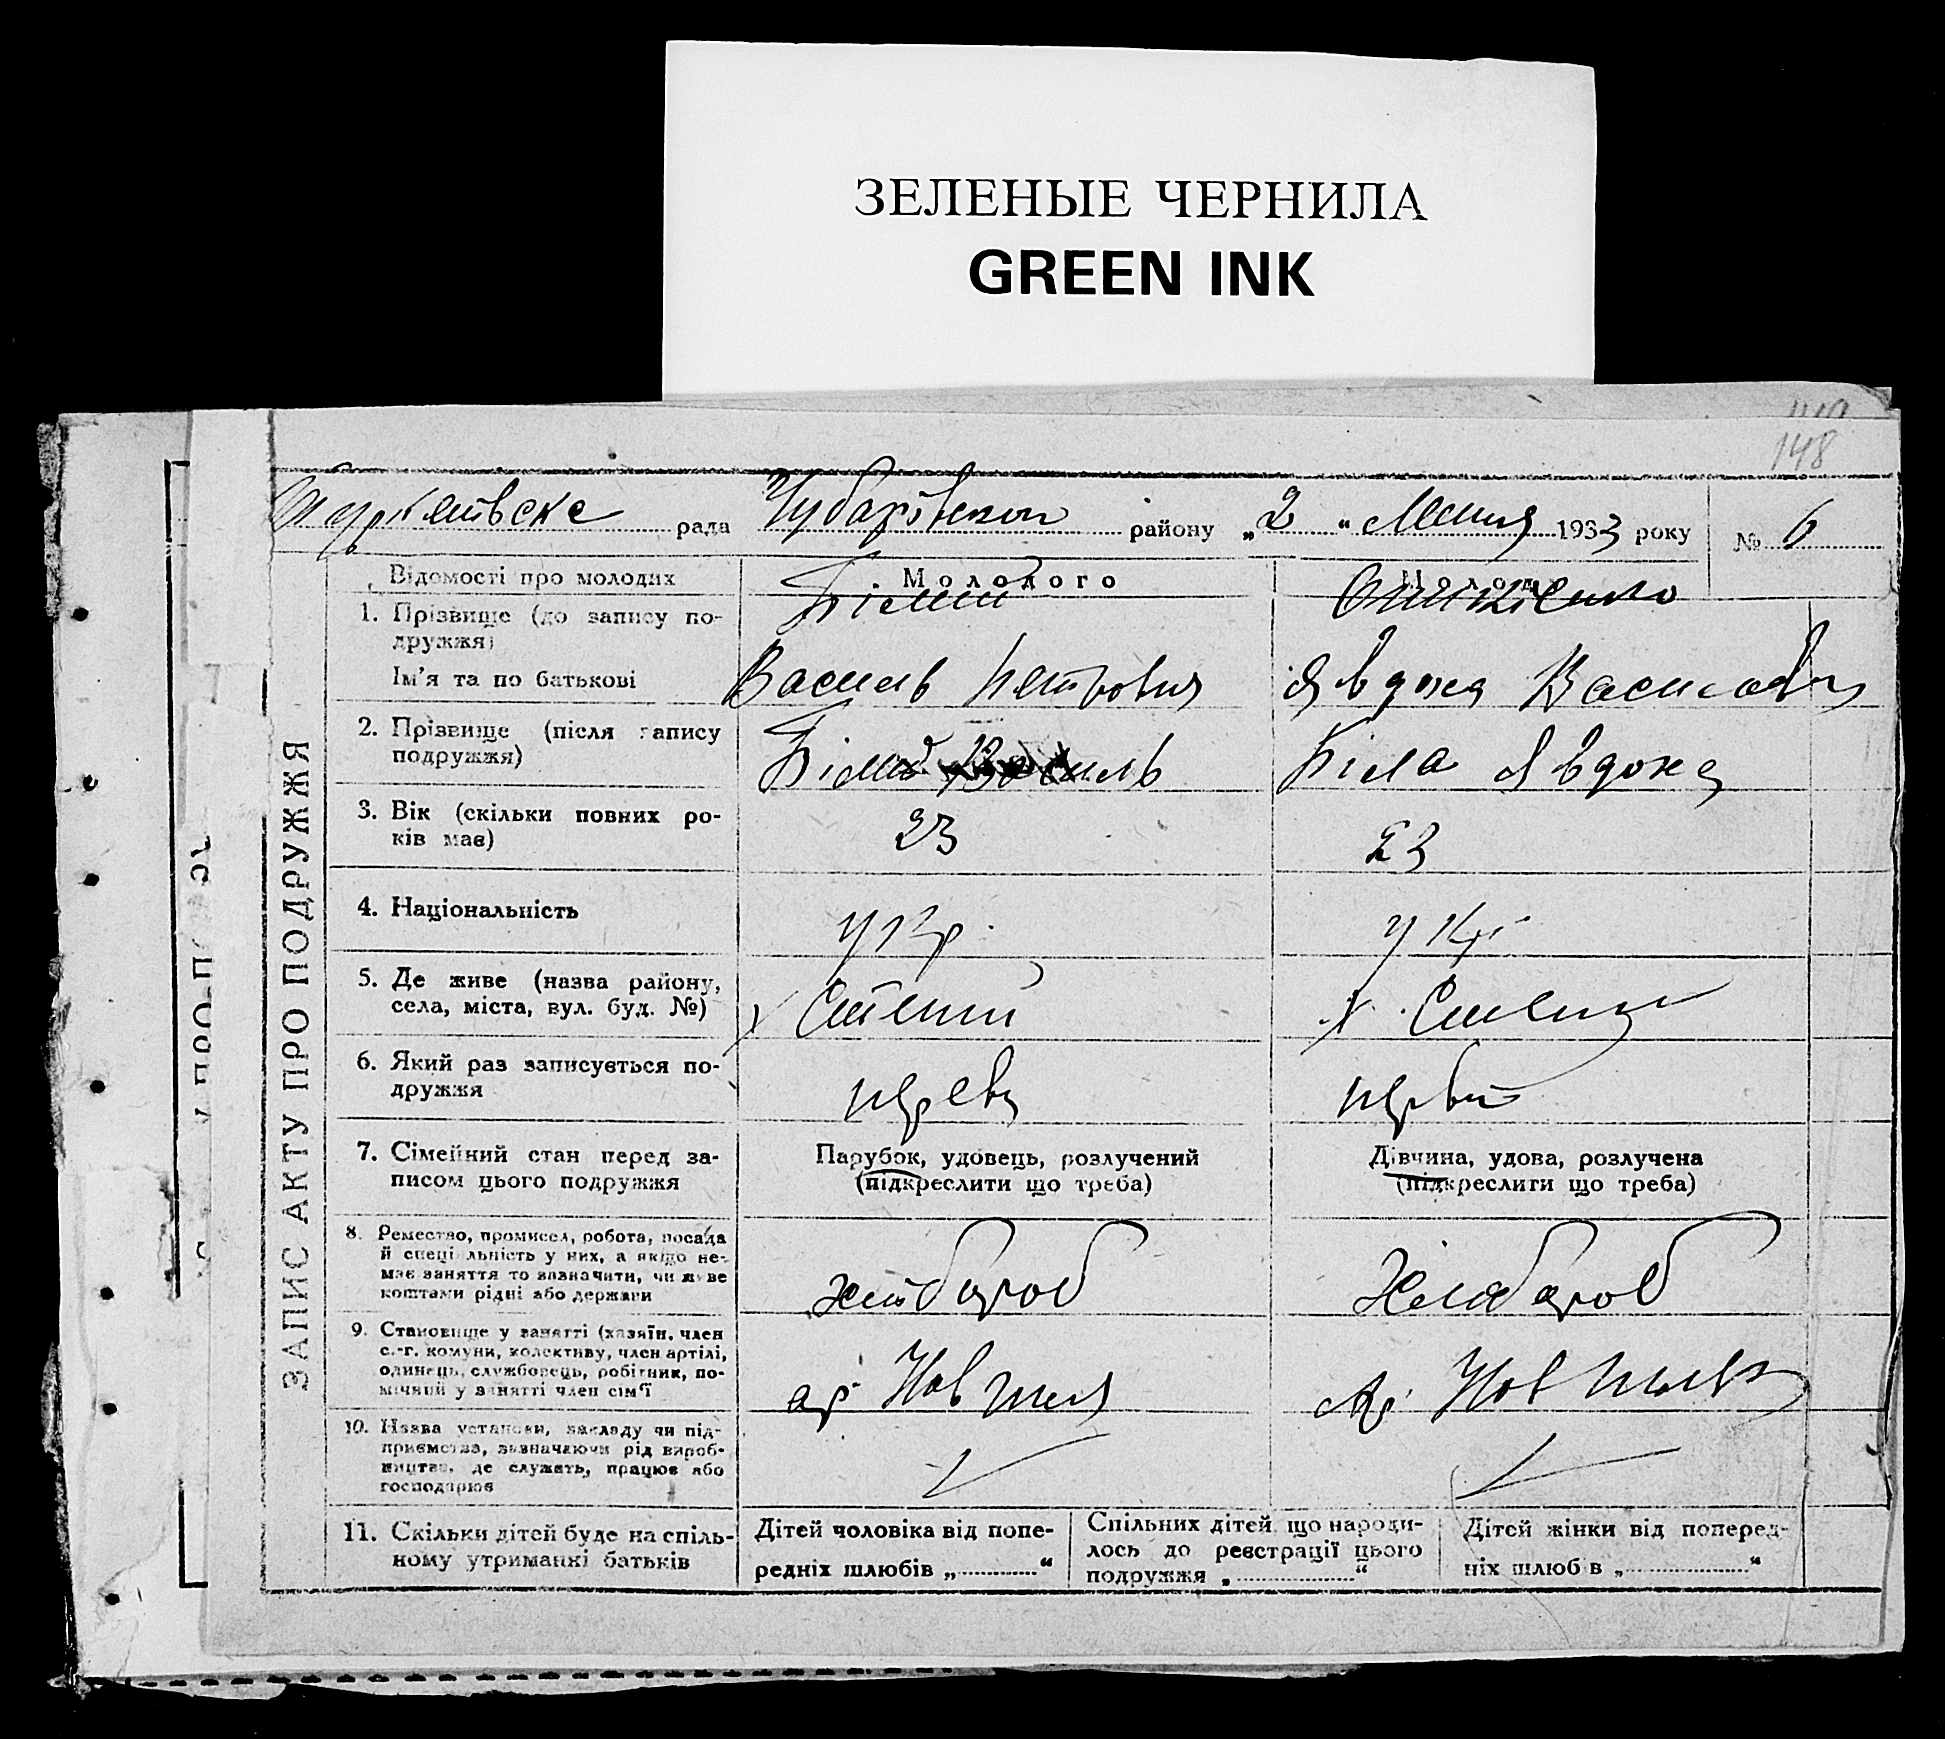 ЗЕЛЕНЫЕ ЧЕРНИЛА
GREEN INK
148
рада району „2“ 1933 року № 6
ЗАПИС АКТУ ПРО ПОДРУЖЖЯ
Відомості про молодих Молодого
1. Прізвище (до запису по-
дружжя) Білий
Ім'я та по батькові Василь Петрович Явдоха
2. Прізвище (після запису
подружжя) Білий Біла Явдоха
3. Вік (скільки повних ро-
ків має) 23 23
4. Національність укр. укр.
5. Де живе (назва району,
села, міста, вул. буд. №) х Степний х. Степни
6. Який раз записується по-
дружжя
7. Сімейний стан перед за-
писом цього подружжя
Парубок, удовець, розлучений
(підкреслити що треба)
Дівчина, удова, розлучена
(підкреслити що треба)
8. Ремество, промисел, робота, посада
й спеціяльність у них, а якщо не-
має заняття то зазначити, чи живе
коштами рідні або держави
хлібороб хлібороб
9. Становище у занятті (хазяїн, член
с.-г. комуни, колективу, член артілі,
одинець, службовець, робітник, по-
мічний у занятті член сім'ї
10. Назва установи, закладу чи під-
приємства, зазначаючи рід вироб-
ництва, де служить, працює або
господарює
11. Скільки дітей буде на спіль-
ному утриманні батьків
Дітей чоловіка від попе-
редніх шлюбів „ “
Спільних дітей, що народи-
лось до реєстрації цього
подружжя „ “
Дітей жінки від поперед-
ніх шлюб в „ “